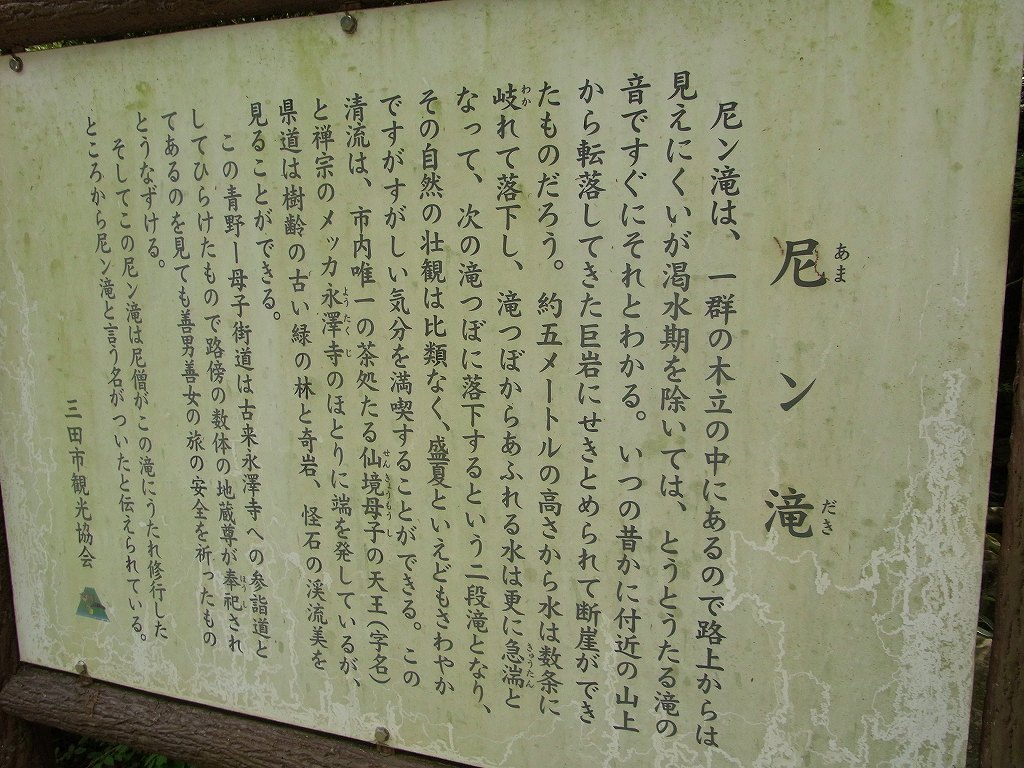 尼ン滝
あま
だき
尼ン滝は、一群の木立の中にあるので路上からは
見えにくいが渇水期を除いては、とうとうたる滝の
音ですぐにそれとわかる。いつの昔かに付近の山上
から転落してきた巨岩にせきとめられて断崖ができ
たものだろう。約五メートルの高さから水は数条に
岐れて落下し、滝つぼからあふれる水は更に急湍と
わか
きゅうたん
なって、次の滝つぼに落下するという二段滝となり、
その自然の壮観は比類なく、盛夏といえどもさわやか
ですがすがしい気分を満喫することができる。この
清流は、市内唯一の茶処たる仙境母子の天王(字名)
せんきょうもうし
と禅宗のメッカ永澤寺のほとりに端を発しているが、
ようたくじ
県道は樹齢の古い緑の林と奇岩、怪石の渓流美を
見ることができる。
この青野ー母子街道は古来永澤寺への参詣道と
してひらけたもので路傍の数体の地蔵尊が奉祀され
ほうし
てあるのを見ても善男善女の旅の安全を祈ったもの
とうなずける。
そしてこの尼ン滝は尼僧がこの滝にうたれ修行した
ところから尼ン滝と言う名がついたと伝えられている。
三田市観光協会